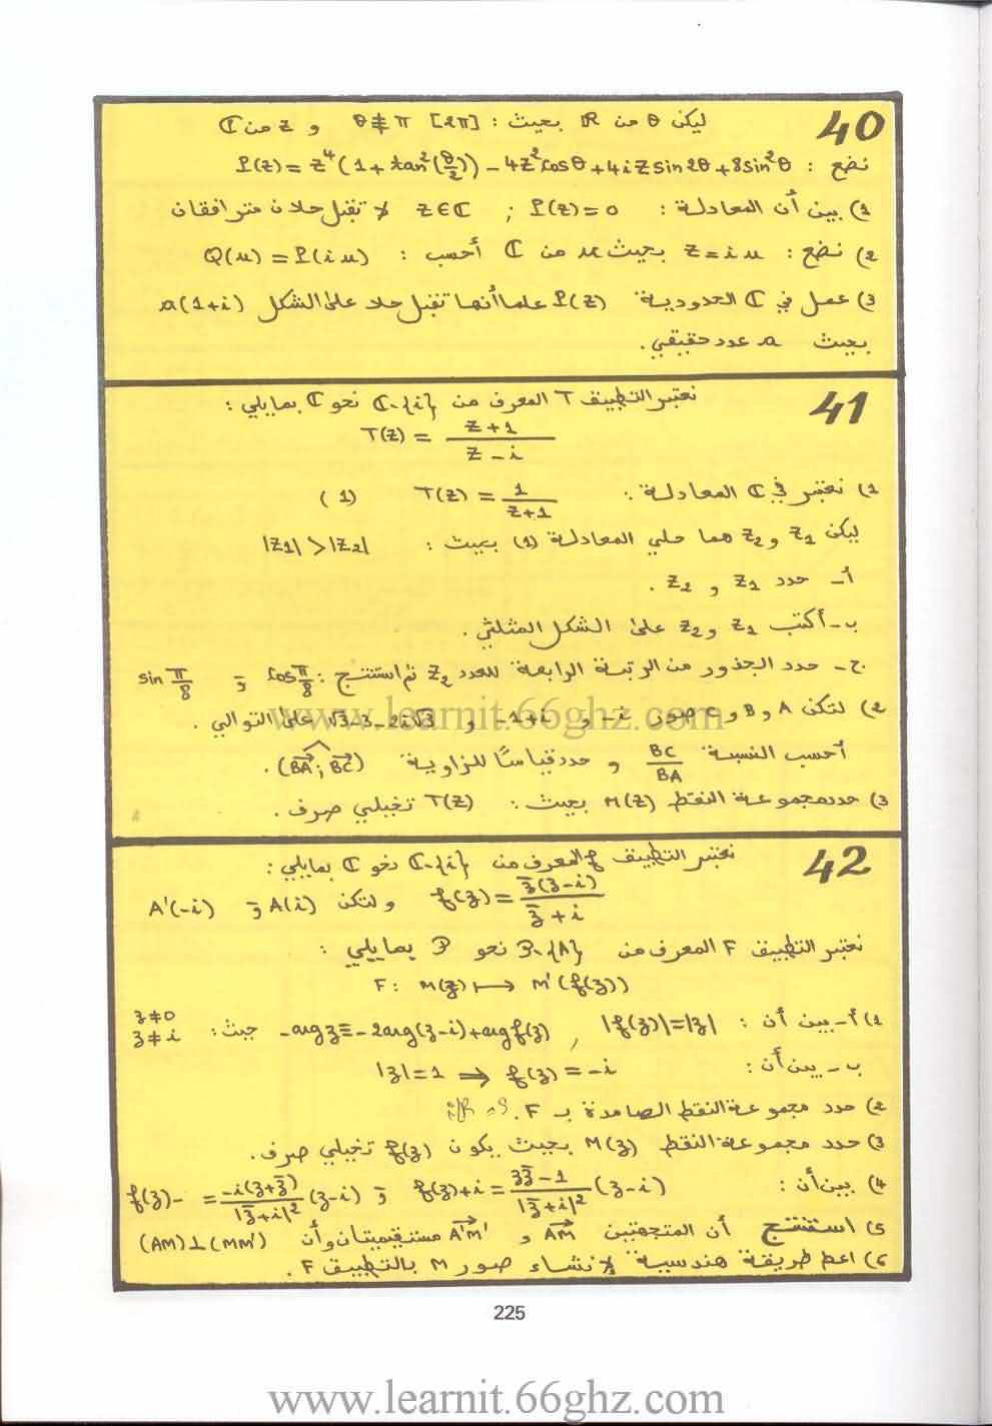 40
ليكن θ من ℝ بحيث : θ ≢ π [2π] و z من ℂ
نضع : P(z) = z⁴(1+tan²(θ/2)) - 4z²cosθ + 4iz sin2θ + 8sin²θ
1) بين أن المعادلة : P(z) = 0 ; z∈ℂ لا تقبل حلان مترافقان
2) نضع : z = iu بحيث u من ℂ أحسب : Q(u) = P(iu)
3) عمل في ℂ الحدودية P(z) علما أنها تقبل حلا على الشكل a(1+i)
بحيث a عدد حقيقي .
41
نعتبر التطبيق T المعرف من ℂ-{i} نحو ℂ بمايلي :
T(z) = (z+1)/(z-i)
1) نعتبر في ℂ المعادلة : T(z) = 1/(z+1) (1)
ليكن z₁ و z₂ هما حلي المعادلة (1) بحيث : |z₁| > |z₂|
أ- حدد z₁ و z₂ .
ب- أكتب z₁ و z₂ على الشكل المثلثي .
ج- حدد الجذور من الرتبة الرابعة للعدد z₂ ثم استنتج : cos π/8 و sin π/8
2) لتكن A و B و C صور -i و -1+i و √3-3-2i√3 على التوالي .
أحسب النسبة BC/BA و حدد قياسًا للزاوية (BA→ ; BC→) .
3) حدد مجموعة النقط M(z) بحيث : T(z) تخيلي صرف .
42
نعتبر التطبيق f المعرف من ℂ-{i} نحو ℂ بمايلي :
f(z) = z̄(z-i)/(z̄+i) ولتكن A(i) و A'(-i)
نعتبر التطبيق F المعرف من P-{A} نحو P بمايلي :
F: M(z) ⟼ M'(f(z))
1) أ- بين أن : |f(z)| = |z| , -arg z ≡ -2arg(z-i) + arg f(z) حيث : z≠0 z≠i
ب- بين أن : |z| = 1 ⇒ f(z) = -i
2) حدد مجموعة النقط الصامدة بـ F .
3) حدد مجموعة النقط M(z) بحيث يكون f(z) تخيلي صرف .
4) بين أن : f(z)+i = (zz̄-1)/|z̄+i|² (z-i) و f(z)- = -i(z+z̄)/|z̄+i|² (z-i)
5) استنتج أن المتجهتين AM→ و A'M'→ مستقيميتان وأن (AM)⊥(MM')
6) اعط طريقة هندسية لإنشاء صور M بالتطبيق F .
225
www.learnit.66ghz.com
www.learnit.66ghz.com